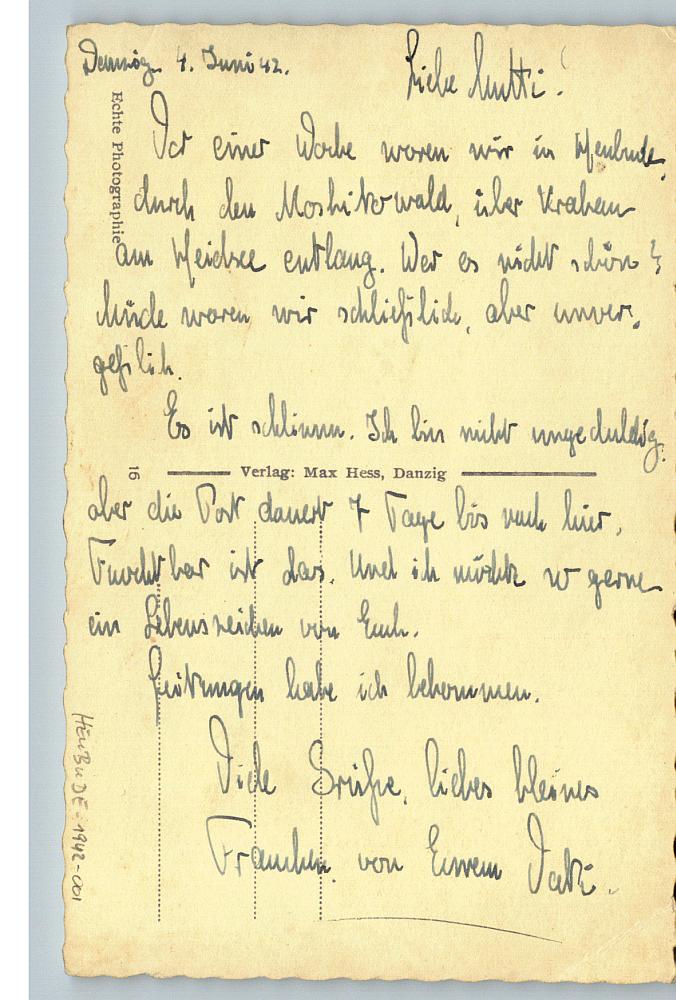 Danzig, 4. Juni 42.
Liebe Mutti!
Vor einer Woche waren wir in Heubude,
durch den wald, über Krakau
am Heidsee entlang. War es nicht schön?
Müde waren wir schließlich, aber unver-
geßlich.
Es ist schlimm. Ich bin nicht ungeduldig,
aber die Post dauert 7 Tage bis nach hier.
Furchtbar ist das. Und ich möchte so gerne
ein Lebenszeichen von Euch.
Zeitungen habe ich bekommen.
Viele Grüße, liebes kleines
Frauchen, von Eurem Vati.
Echte Photographie
16
Verlag: Max Hess, Danzig
HEUBUDE-1942-001